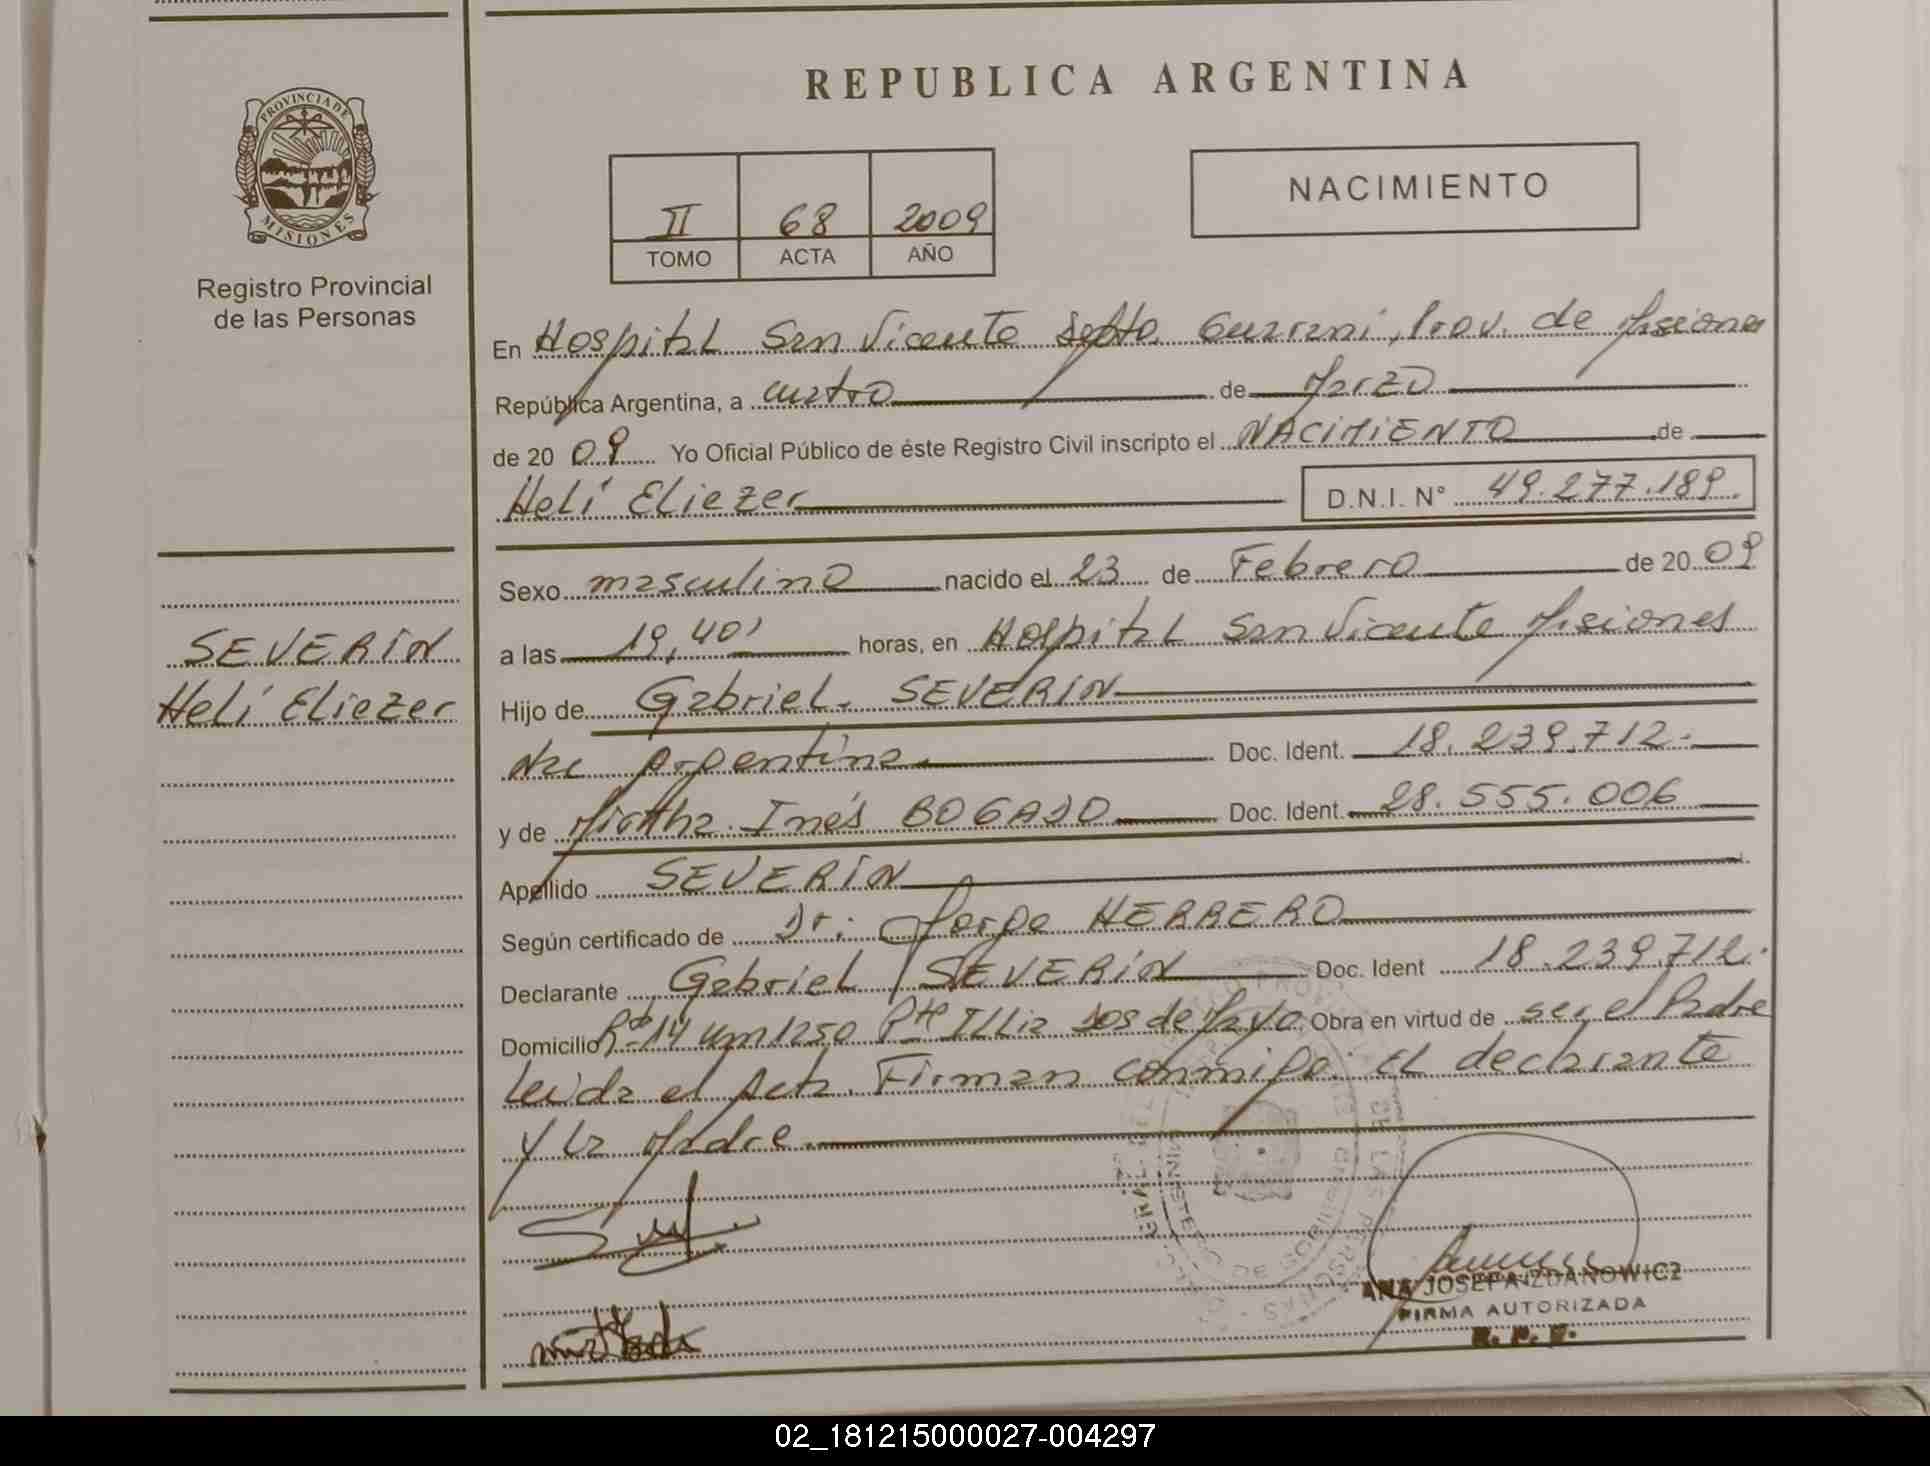 REPUBLICA ARGENTINA
PROVINCIA DE
MISIONES
Registro Provincial
de las Personas
II 68 2009
TOMO ACTA AÑO
NACIMIENTO
En Hospital San Vicente Depto. Guarani, Prov. de Misiones
República Argentina, a cuatro de Marzo
de 20 09 Yo Oficial Público de éste Registro Civil inscripto el NACIMIENTO de
Helí Eliezer D.N.I. N° 49.277.189.
Sexo masculino nacido el 23 de Febrero de 20 09
a las 19,40' horas, en Hospital San Vicente Misiones
Hijo de Gabriel SEVERIN
Nac Argentina. Doc. Ident. 18.239.712.
y de Mirtha Inés BOGADO Doc. Ident. 28.555.006
Apellido SEVERIN
Según certificado de Dr. Jorge HERRERO
Declarante Gabriel SEVERIN Doc. Ident 18.239.712.
Domicilio Rta 14 Km 1250 Pte Illia Dos de Mayo Obra en virtud de ser el Padre
Leida el Acta. Firman conmigo: El declarante
y la Madre
SEVERIN
Helí Eliezer
ANA JOSEFA IZDANOWICZ
FIRMA AUTORIZADA
R. P. P.
02_181215000027-004297